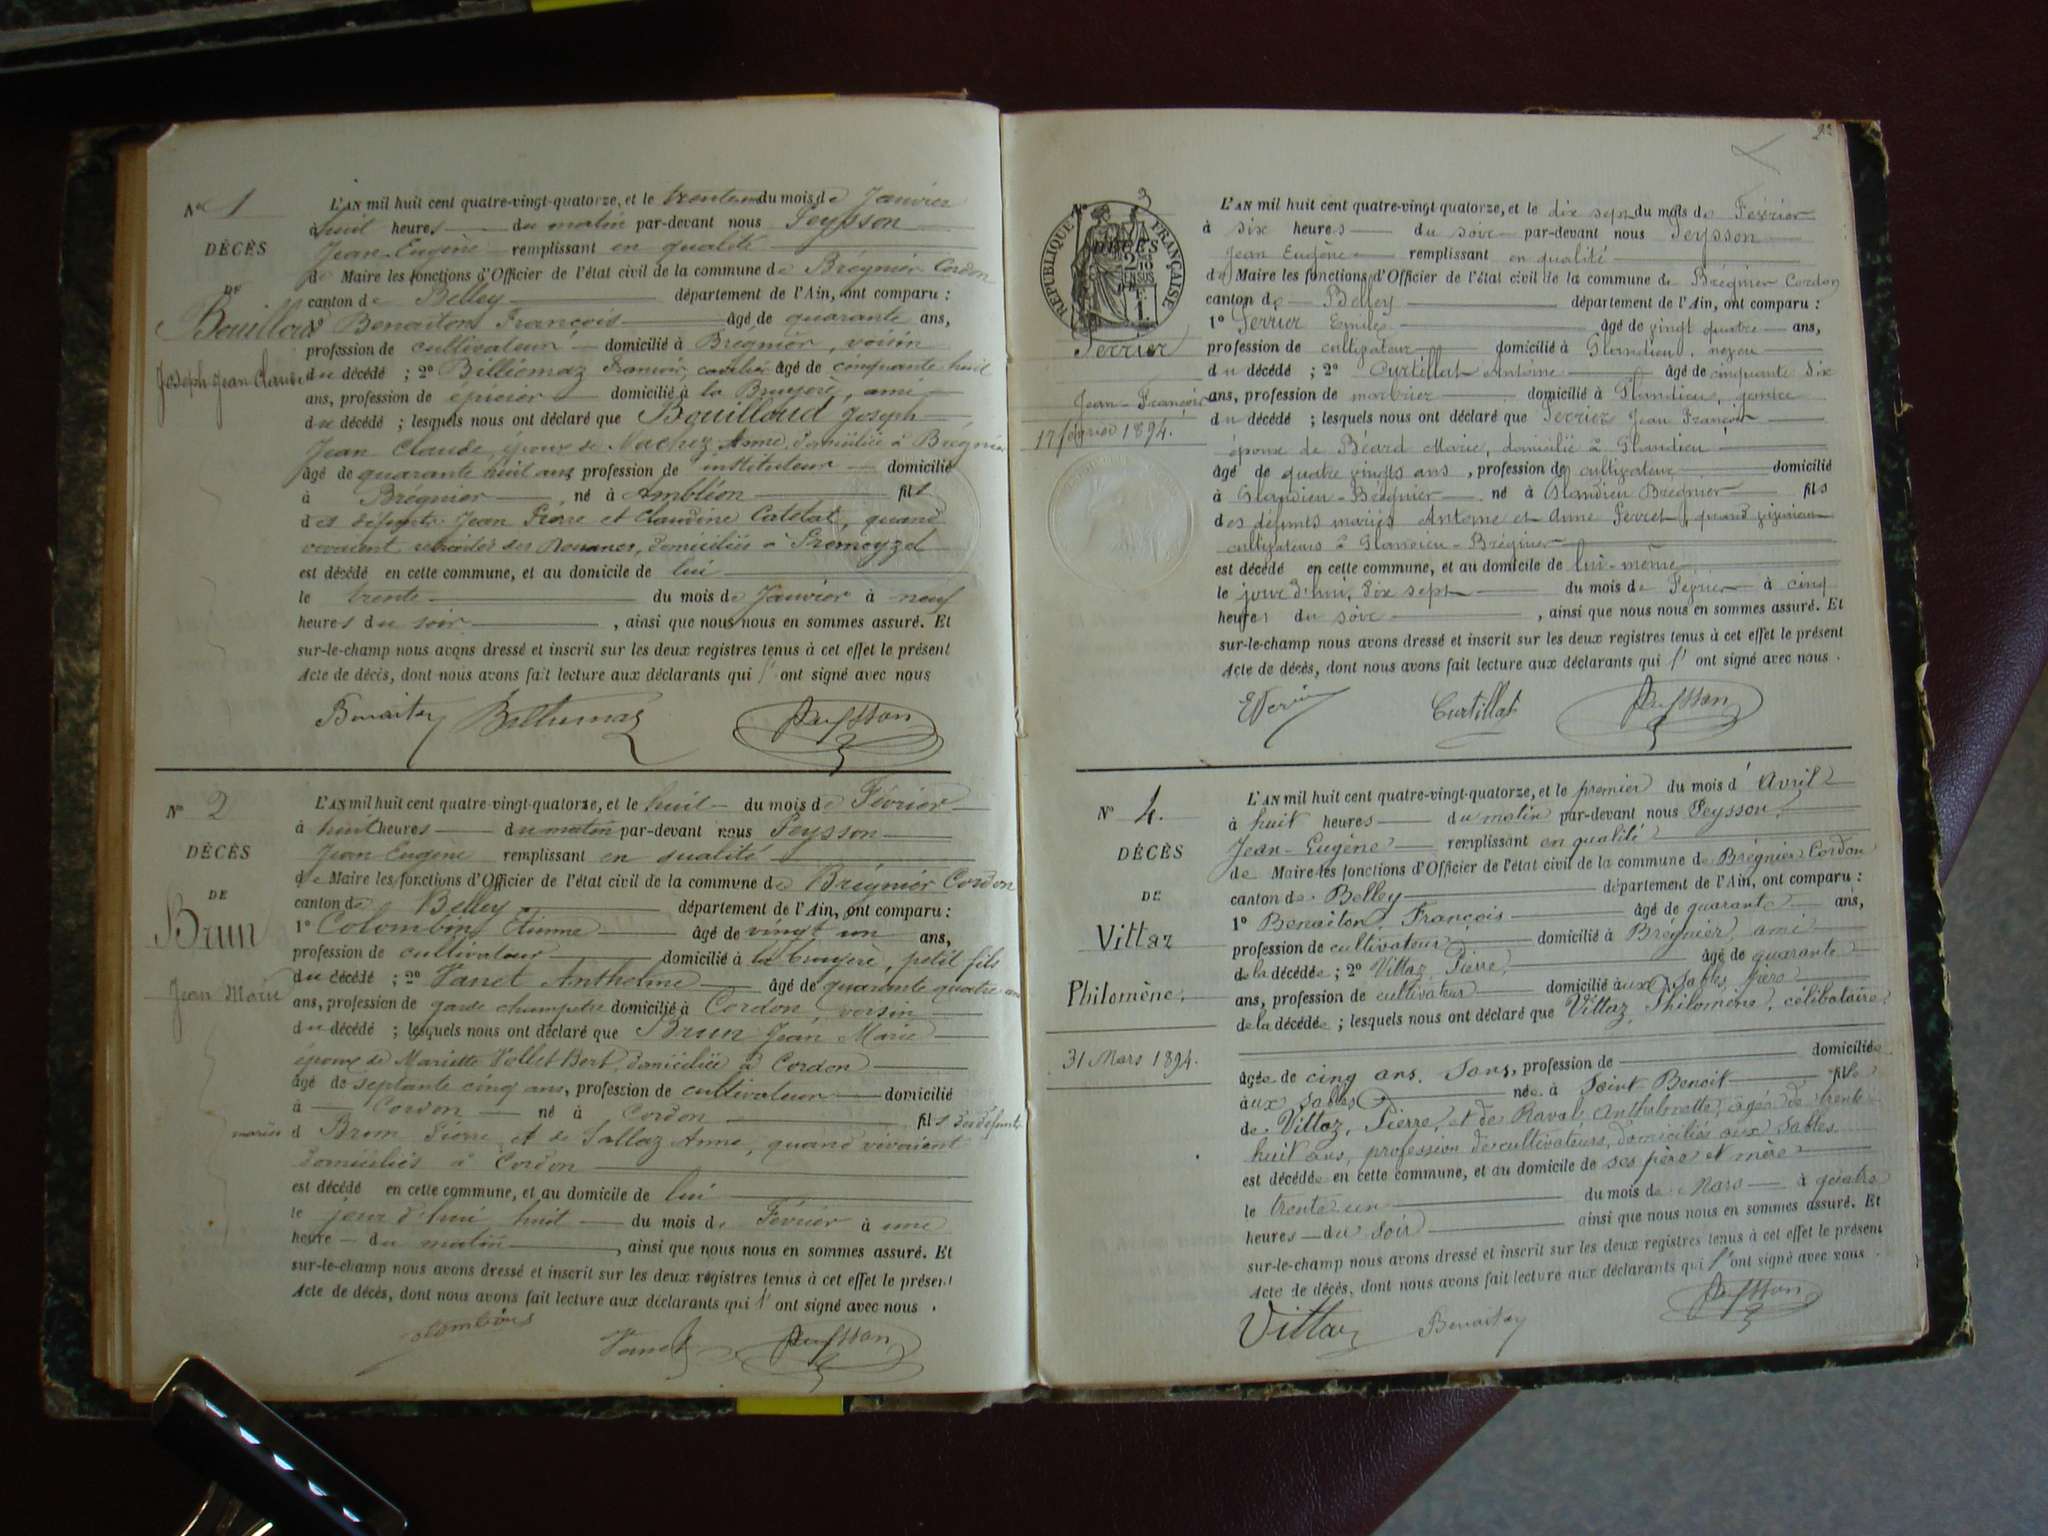 N° 1
DÉCÈS
DE
Bouilloud
Joseph Jean Claude
L'AN mil huit cent quatre-vingt-quatorze, et le trente un du mois de Janvier
à huit heures du matin par-devant nous Peysson
Jean Eugène remplissant en qualité
de Maire les fonctions d'Officier de l'état civil de la commune de Brégnier Cordon
canton de Belley département de l'Ain, ont comparu :
1° Benaiton François âgé de quarante ans,
profession de cultivateur domicilié à Brégnier, voisin
du décédé ; 2° Billiemaz François, âgé de cinquante huit
ans, profession de épicier domicilié à la Bruyère, ami
du décédé ; lesquels nous ont déclaré que Bouilloud Joseph
Jean Claude, époux de Anne, domicilié à Brégnier
âgé de quarante huit ans profession de instituteur domicilié
à Brégnier né à Ambléon fils
des défunts Jean Pierre et Claudine Catelat, quand
vivaient retraités des Douanes, domiciliés à Premeyzel
est décédé en cette commune, et au domicile de lui
le trente du mois de Janvier à neuf
heures du soir, ainsi que nous nous en sommes assuré. Et
sur-le-champ nous avons dressé et inscrit sur les deux registres tenus à cet effet le présent
Acte de décès, dont nous avons fait lecture aux déclarants qui l'ont signé avec nous
Benaiton Billiemaz Peysson
N° 2
DÉCÈS
DE
Brun
Jean Marie
L'AN mil huit cent quatre-vingt-quatorze, et le huit du mois de Février
à huit heures du matin par-devant nous Peysson
Jean Eugène remplissant en qualité
de Maire les fonctions d'Officier de l'état civil de la commune de Brégnier Cordon
canton de Belley département de l'Ain, ont comparu :
1° Colombin Etienne âgé de vingt un ans,
profession de cultivateur domicilié à la bruyère, petit fils
du décédé ; 2° Vanet Anthelme âgé de quarante quatre ans
ans, profession de garde champetre domicilié à Cordon, voisin
du décédé ; lesquels nous ont déclaré que Brun Jean Marie
époux de Mariette Vollet Bert, domiciliée à Cordon
âgé de septante cinq ans, profession de cultivateur domicilié
à Cordon né à Cordon fils des défunts
mariés d Brun Pierre et de Sallaz Anne, quand vivaient
domiciliés à Cordon
est décédé en cette commune, et au domicile de lui
le jour d'hui huit du mois de Février à une
heure du matin, ainsi que nous nous en sommes assuré. Et
sur-le-champ nous avons dressé et inscrit sur les deux registres tenus à cet effet le présent
Acte de décès, dont nous avons fait lecture aux déclarants qui l'ont signé avec nous.
Colombin Vanet Peysson
22
N° 3
DÉCÈS
RÉPUBLIQUE FRANÇAISE
Perrier
Jean-François
17 février 1894.
L'AN mil huit cent quatre-vingt-quatorze, et le dix sept du mois de Février
à six heures du soir par-devant nous Peysson
Jean Eugène remplissant en qualité
de Maire les fonctions d'Officier de l'état civil de la commune de Brégnier Cordon
canton de Belley département de l'Ain, ont comparu :
1° Perrier Emile âgé de vingt quatre ans,
profession de cultivateur domicilié à Glandieu, neveu
du décédé ; 2° Curtillat Antoine âgé de cinquante dix
ans, profession de marbrier domicilié à Glandieu, gendre
du décédé ; lesquels nous ont déclaré que Perrier Jean François
époux de Béard Marie, domicilié à Glandieu
âgé de quatre vingts ans, profession de cultivateur domicilié
à Glandieu-Brégnier né à Glandieu Brégnier fils
des défunts mariés Antoine et Anne Perret, quand vivaient
cultivateurs à Glandieu-Brégnier
est décédé en cette commune, et au domicile de lui-même
le jour d'hui, dix sept du mois de Février à cinq
heures du soir, ainsi que nous nous en sommes assuré. Et
sur-le-champ nous avons dressé et inscrit sur les deux registres tenus à cet effet le présent
Acte de décès, dont nous avons fait lecture aux déclarants qui l'ont signé avec nous.
Curtillat Peysson
N° 4.
DÉCÈS
DE
Vittaz
Philomène.
31 Mars 1894.
L'AN mil huit cent quatre-vingt-quatorze, et le premier du mois d'Avril
à huit heures du matin par-devant nous Peysson,
Jean-Eugène remplissant en qualité
de Maire les fonctions d'Officier de l'état civil de la commune de Brégnier Cordon
canton de Belley département de l'Ain, ont comparu :
1° Benaiton, François âgé de quarante ans,
profession de cultivateur domicilié à Brégnier, ami
de la décédée ; 2° Vittaz, Pierre, âgé de quarante
ans, profession de cultivateur domicilié aux Sables, père
de la décédée ; lesquels nous ont déclaré que Vittaz, Philomène, célibataire
âgée de cinq ans, sans, profession de domiciliée
aux Sables née à Saint-Benoit fille
de Vittaz, Pierre, et de Raval, Anthelmette, âgés de trente
huit ans, profession de cultivateurs, domiciliés aux Sables
est décédée en cette commune, et au domicile de ses père et mère
le trente un du mois de Mars à quatre
heures du soir ainsi que nous nous en sommes assuré. Et
sur-le-champ nous avons dressé et inscrit sur les deux registres tenus à cet effet le présent
Acte de décès, dont nous avons fait lecture aux déclarants qui l'ont signé avec nous.
Vittaz Benaiton Peysson